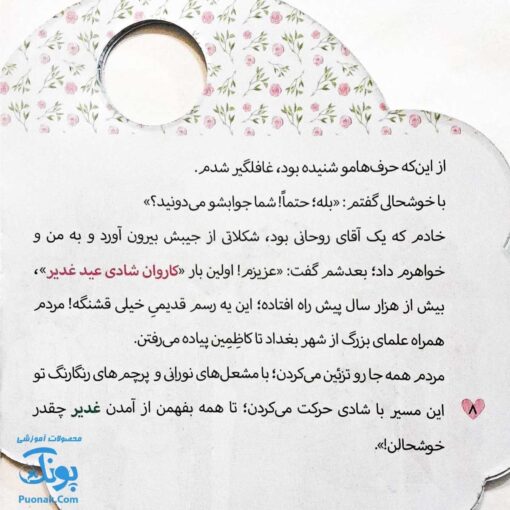 از این‌که حرف‌هامو شنیده بود، غافلگیر شدم.
با خوشحالی گفتم: «بله؛ حتماً! شما جوابشو می‌دونید؟»
خادم که یک آقای روحانی بود، شکلاتی از جیبش بیرون آورد و به من و
خواهرم داد؛ بعدشم گفت: «عزیزم! اولین بار «کاروان شادی عید غدیر»،
بیش از هزار سال پیش راه افتاده؛ این یه رسم قدیمیِ خیلی قشنگه! مردم
همراه علمای بزرگ از شهر بغداد تا کاظِمِین پیاده می‌رفتن.
مردم همه جا رو تزئین می‌کردن؛ با مشعل‌های نورانی و پرچم‌های رنگارنگ تو
این مسیر با شادی حرکت می‌کردن؛ تا همه بفهمن از آمدن غدیر چقدر
خوشحالن!».
۸
محصولات آموزشی
پونک
Puonak.Com